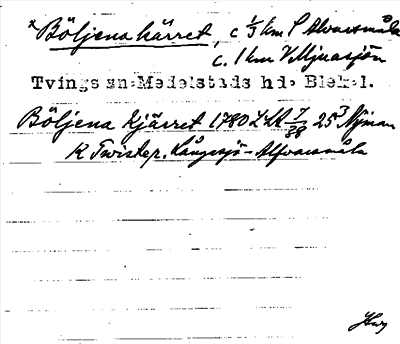 ×Böljena kärret, c ⅓ km S Alvarsmåla
c. 1 km V Mjuasjön
Tvings sn. Medelstads hd. Blek. l.
Böljena kjärret 1780 LSA 7/38 25³ Nyman
K Twister. Långesjö - Alfvarsmåla